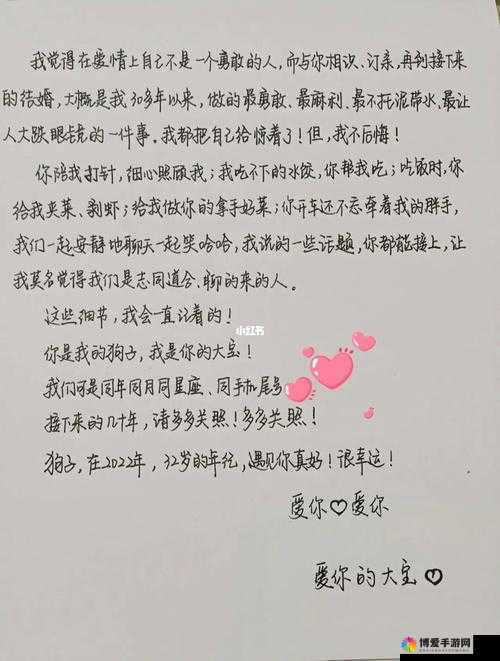 我觉得在爱情上自己不是一个勇敢的人，而与你相识、订亲，再到接下来
的结婚，大概是我30多年以来，做的最勇敢、最麻利、最不托泥带水、最让
人大跌眼镜的一件事。我都把自己给惊着了！但，我不后悔！
你陪我打针，细心照顾我；我吃不下的水饺，你帮我吃；吃饭时，你
给我夹菜、剥虾；给我做你的拿手好菜；你开车还不忘牵着我的胖手，
我们一起安静地聊天一起笑哈哈，我说的一些话题，你都能接上，让
我莫名觉得我们是志同道合、聊的来的人。
这些细节，我会一直记着的！
小红书
你是我的狗子，我是你的大宝！
我们可是同年同月同星座、同手机尾号
接下来的几十年，请多多关照！多多关照！
狗子，在2022年，32岁的年纪，遇见你真好！很幸运！
爱你♡爱你
爱你的大宝
博爱手游网